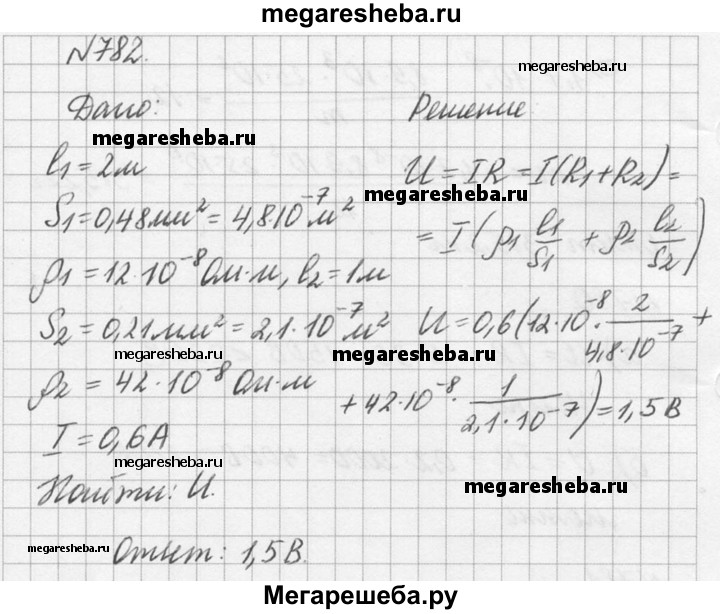 megaresheba.ru
№782.
megaresheba.ru
Дано:
Решение
megaresheba.ru
l₁ = 2м
U = IR = I(R₁ + R₂) =
S₁ = 0,48мм² = 4,8 10⁻⁷ м²
megaresheba.ru
= I (ρ₁ l₁/S₁ + ρ₂ l₂/S₂)
ρ₁ = 12·10⁻⁸ Ом·м, l₂ = 1м
S₂ = 0,21мм² = 2,1·10⁻⁷ м²
U = 0,6(12·10⁻⁸ · 2/4,8·10⁻⁷ +
megaresheba.ru
megaresheba.ru
ρ₂ = 42·10⁻⁸ Ом·м
+ 42·10⁻⁸ · 1/2,1·10⁻⁷) = 1,5 В
I = 0,6А
megaresheba.ru
Найти: U.
megaresheba.ru
megaresheba.ru
Ответ: 1,5 В.
Мегарешеба.ру